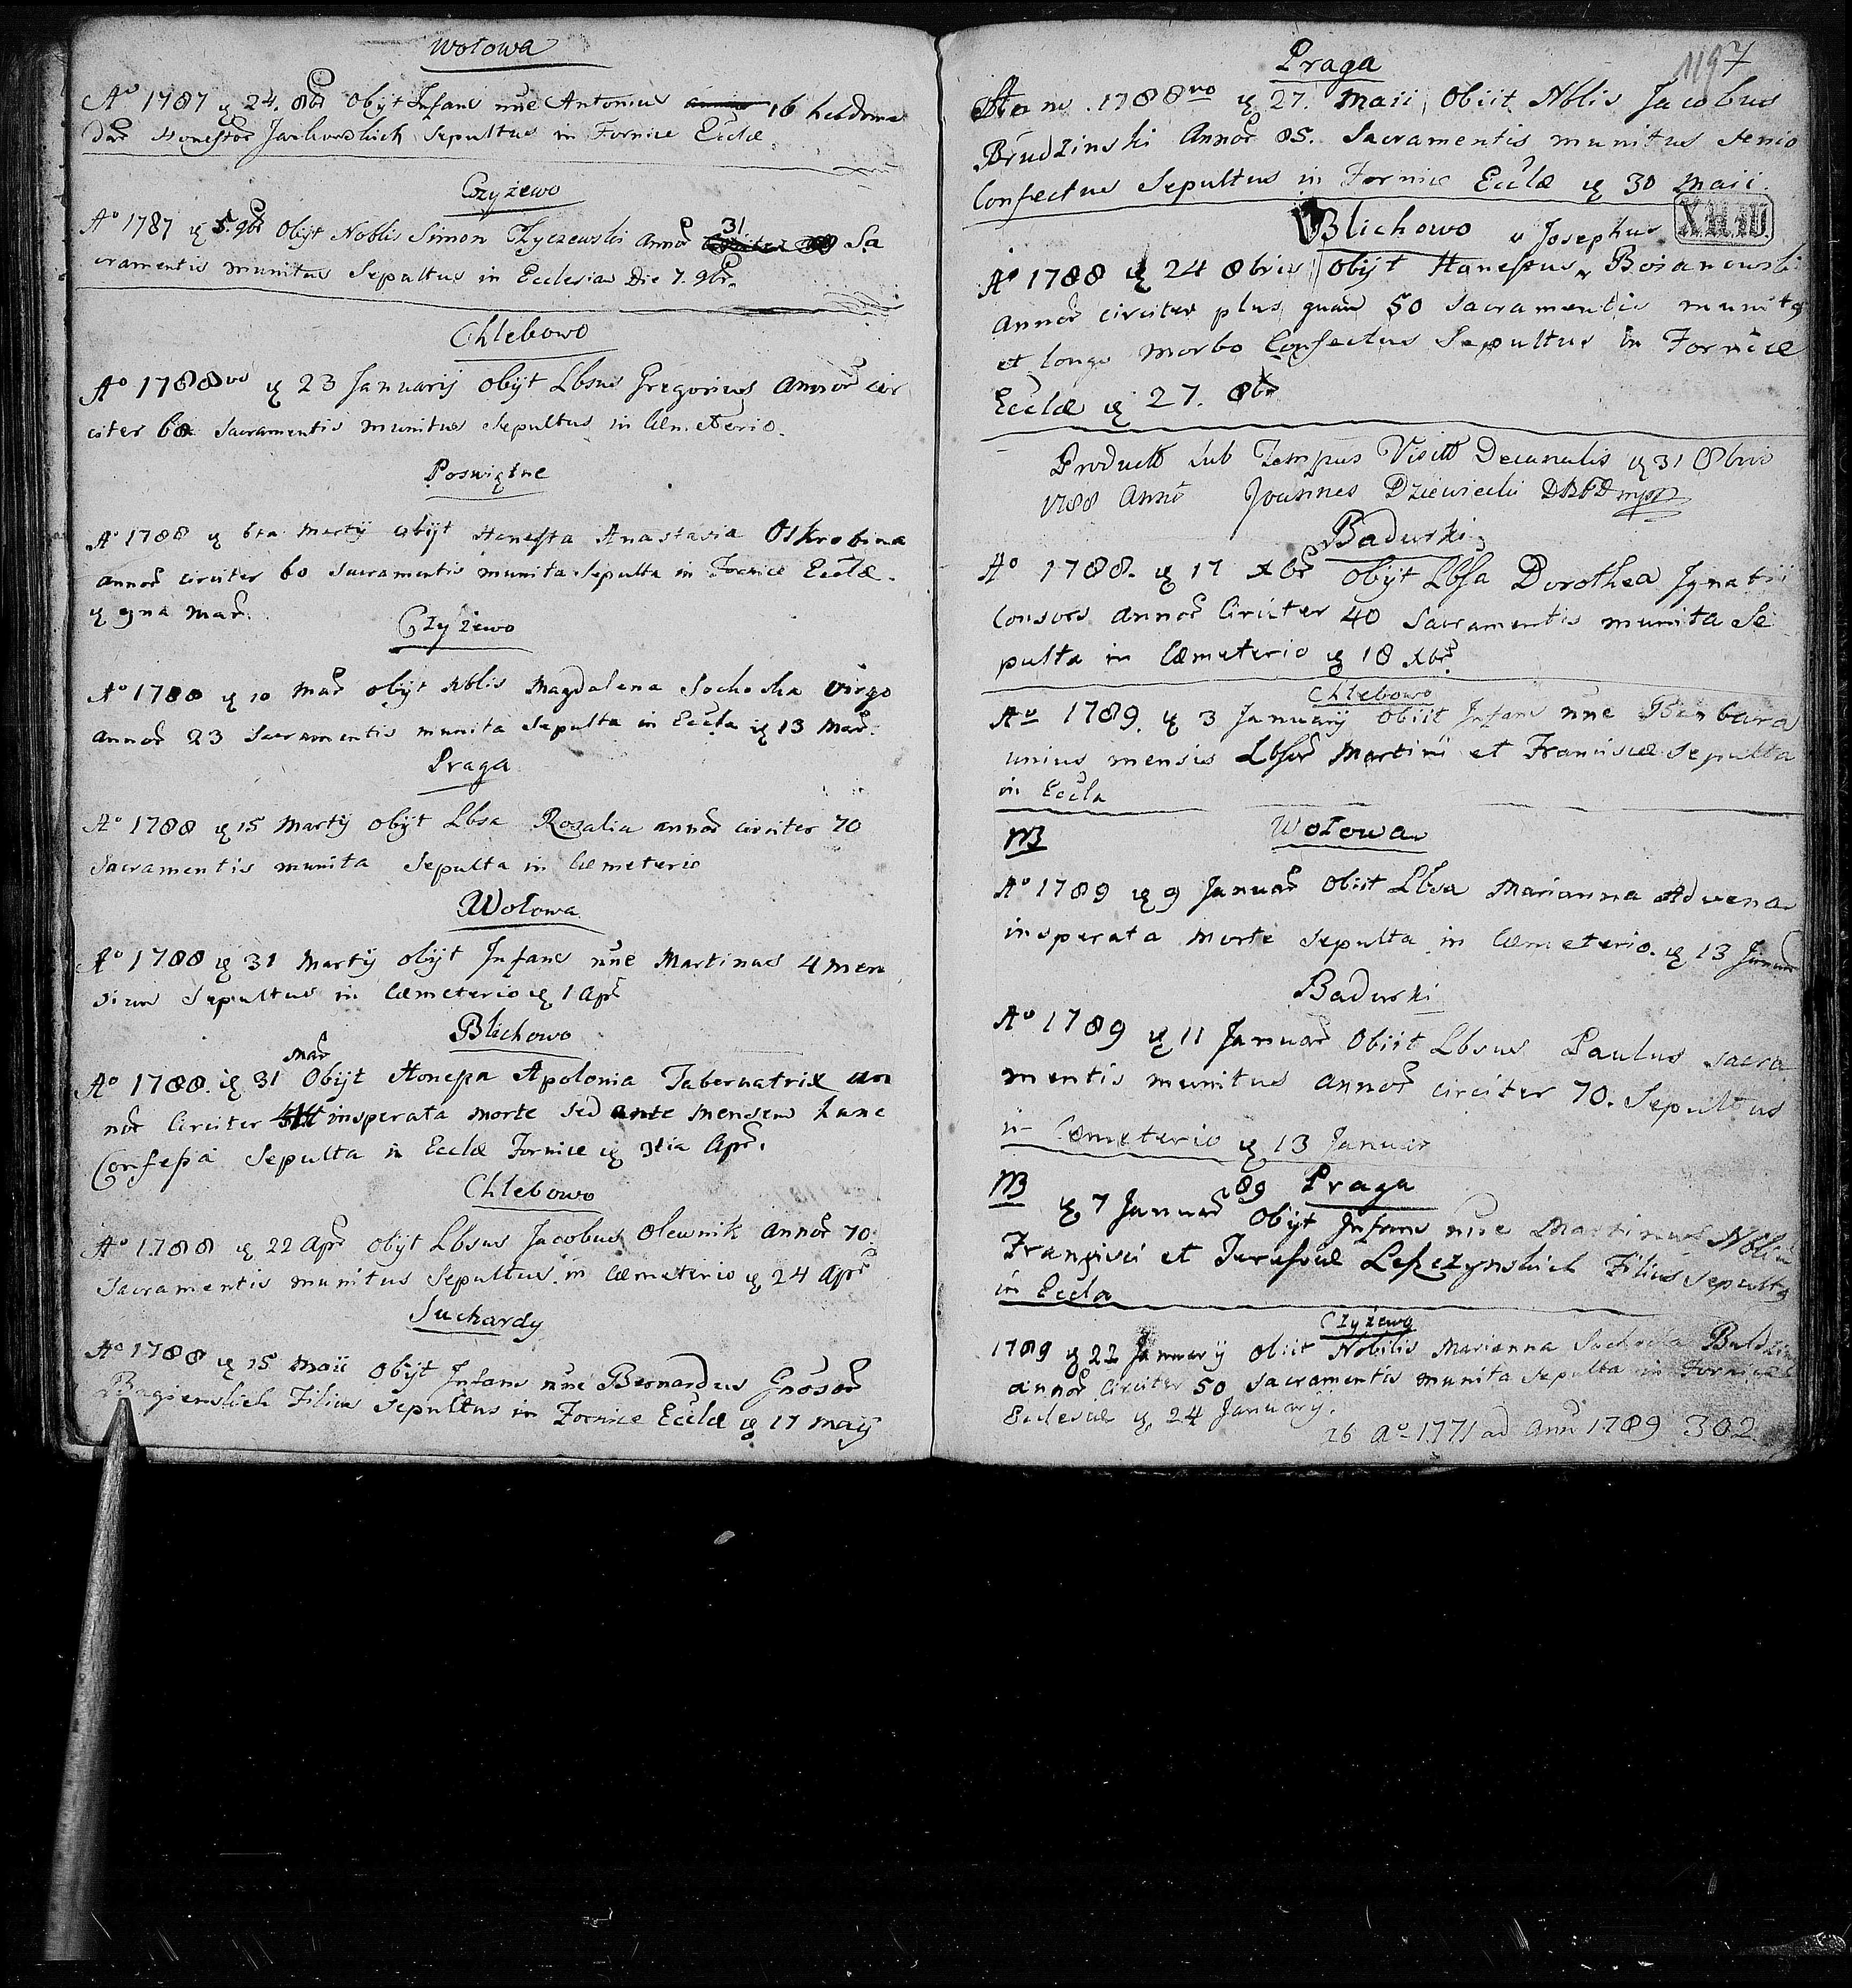 Wołowa
Aº 1787 ꝗ 24. 8br Obijt Infans nne Antonius 16 hebdoma
dar Honestor Sepultus in Fornice Ecclæ
Czyżewo
Aº 1787 ꝗ 5. 9br Obijt Noblis Simon Czyczewski Annor 31 Sa
cramentis munitus Sepultus in Ecclesia Die 7. 9br.
Chlebowo
Aº 1788vo ꝗ 23 Januarij obijt Lbsus Gregorius Annor cir
citer 60 Sacramentis munitus Sepultus in Cæmeterio.
Poswiętne
Aº 1788 ꝗ 6ta Martij obijt Honesta Anastasia Oskrobina
annor circiter 60 Sacramentis munita Sepulta in Fornice Ecclæ.
ꝗ 9na Mar.
Czyżewo
Aº 1788 ꝗ 10 Mar obijt Nblis Magdalena Sochocka Virgo
annor 23 Sacramentis munita Sepulta in Eccla ꝗ 13 Mar.
Praga
Aº 1788 ꝗ 15 Martij obijt Lbsa Rosalia annor circiter 70
Sacramentis munita Sepulta in Cæmeterio
Wołowa
Aº 1788 ꝗ 31 Martij obijt Infans nne Martinus 4 men
sium Sepultus in Cæmeterio ꝗ 1 Apr
Blichowo
Aº 1788. ꝗ 31 Mar Obijt Honesta Apolonia Tabernatrix an
nor Circiter insperata morte sed ante mensem hunc
Confessa Sepulta in Ecclæ Fornice ꝗ 3tia Apr.
Chlebowo
Aº 1788 ꝗ 22 Apr obijt Lbsus Jacobus Olewnik annor 70.
Sacramentis munitus Sepultus in Cæmeterio ꝗ 24 Apr
Suchardy
Aº 1788 ꝗ 15 Maii Obijt Infans nne Bernardus Gnosor
Bagienskich Filius Sepultus in Fornice Ecclæ ꝗ 17 Maij
119 7
Praga
1788vo ꝗ 27. Maii, Obiit Nblis Jacobus
Brudzinski Annor 85. Sacramentis munitus Senio
Confectus Sepultus in Fornice Ecclæ ꝗ 30 Maii.
Blichowo
Josephus
Aº 1788 ꝗ 24 8bris Obijt Honestus Bojanowski
Annor circiter plus quam 50 Sacramentis munitus
et longo morbo Confectus Sepultus in Fornice
Ecclæ ꝗ 27. 8br
Product Sub Tempus Visitt Decanalis ꝗ 31 8bris
1788 Anno Joannes Dziewiecki
Badurki
Aº 1788. ꝗ 17 Xbr Obijt Lbsa Dorothea Ignatii
Consors annor Circiter 40 Sacramentis munita Se
pulta in Cæmeterio ꝗ 18 Xbr
Chlebowo
Aº 1789. ꝗ 3 Januarij Obiit Infans nne Barbara
unius mensis Lbsor Martini et Franciscæ Sepulta
in Eccla
NB Wołowa
Aº 1789 ꝗ 9 Januar Obiit Lbsa Marianna Advena
insperata morte Sepulta in Cæmeterio. ꝗ 13 Januar
Badurki
Aº 1789 ꝗ 11 Januar Obiit Lbsus Paulus Sacra
mentis munitus annor circiter 70. Sepultus
in Cæmeterio ꝗ 13 Januar
NB 89 Praga
ꝗ 7 Januar Obijt Infans nne Martinus Nbliu
Francisci et Leszczynskich Filius Sepultus
in Eccla
Czyżewo
1789 ꝗ 22 Januarij Obiit Nobilis Marianna
annor Circiter 50 Sacramentis munita Sepulta in Fornice
Ecclesiæ ꝗ 24 Januarij.
ab Aº 1771 ad Ann 1789 302